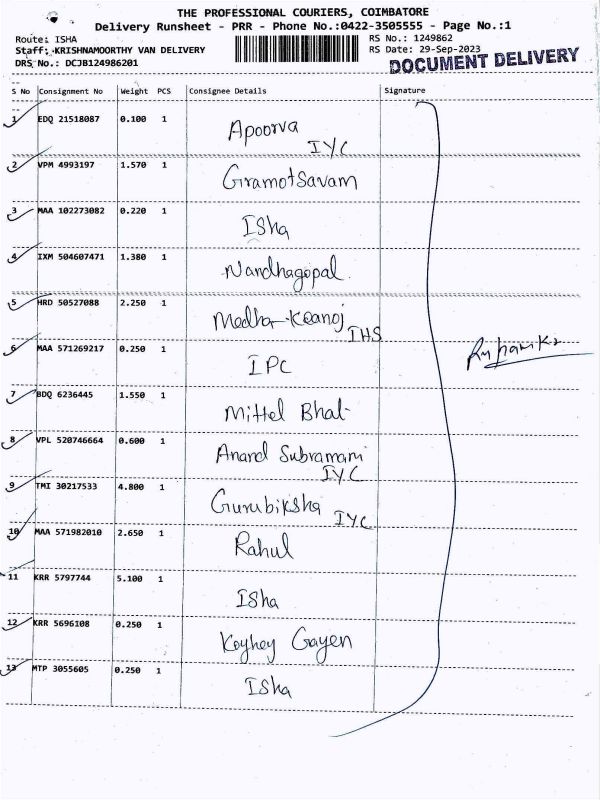 THE PROFESSIONAL COURIERS, COIMBATORE
Delivery Runsheet - PRR - Phone No.:0422-3505555 - Page No.:1
Route: ISHA
Staff: KRISHNAMOORTHY VAN DELIVERY
DRS No.: DCJB124986201
RS No.: 1249862
RS Date: 29-Sep-2023
DOCUMENT DELIVERY
S No Consignment No Weight PCS Consignee Details Signature
1 EDQ 21518087 0.100 1 Apoorva
IYC
2 VPM 4993197 1.570 1 Gramotsavam
3 MAA 102273082 0.220 1 ISha
4 IXM 504607471 1.380 1 Nandhagopal
5 HRD 50527088 2.250 1 Medha
IHS
6 MAA 571269217 0.250 1 IPC
7 BDQ 6236445 1.550 1 Mittel Bhat
8 VPL 520746664 0.600 1 Anand Subramani
IYC
9 TMI 30217533 4.800 1 Gurubiksha
IYC
10 MAA 571982010 2.650 1 Rahul
11 KRR 5797744 5.100 1 ISha
12 KRR 5696108 0.250 1 Gayen
13 MTP 3055605 0.250 1 ISha